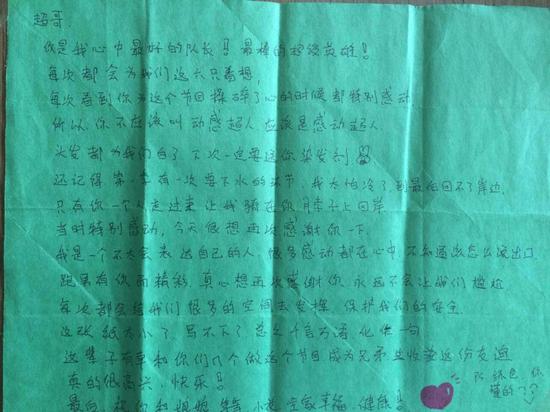 超哥.
你是我心中最好的队长! 最棒的超级英雄!
每次都会为我们这大只着想,
每次看到你为这个节目操碎了心的时候都特别感动
所以 你不应该叫 动感超人 应该是感动超人
头发都为我们白了 下次一定要送你染发剂
还记得第一季有一次要下水的环节,我太怕冷了,到最后回不了岸边.
只有你一个人走过来 让我骑在你脖子上回岸
当时特别感动,今天很想再次感谢你一下.
我是一个不太会表达自己的人,很多感动都在心中,不知道该怎么说出口
跑男有你而精彩,真心想再次感谢你,永远不会让我们尴尬
每次都会给我们很多的空间去发挥,保护我们的安全
这张纸太小了,写不下了,总之千言万语化作一句
这辈子有幸和你们几个做这个节目成为兄弟并收获这份友谊
真的很高兴,快乐!
PS 绿色,你懂的
最后 祝你和娘娘 等等 小 全家幸福、健康!